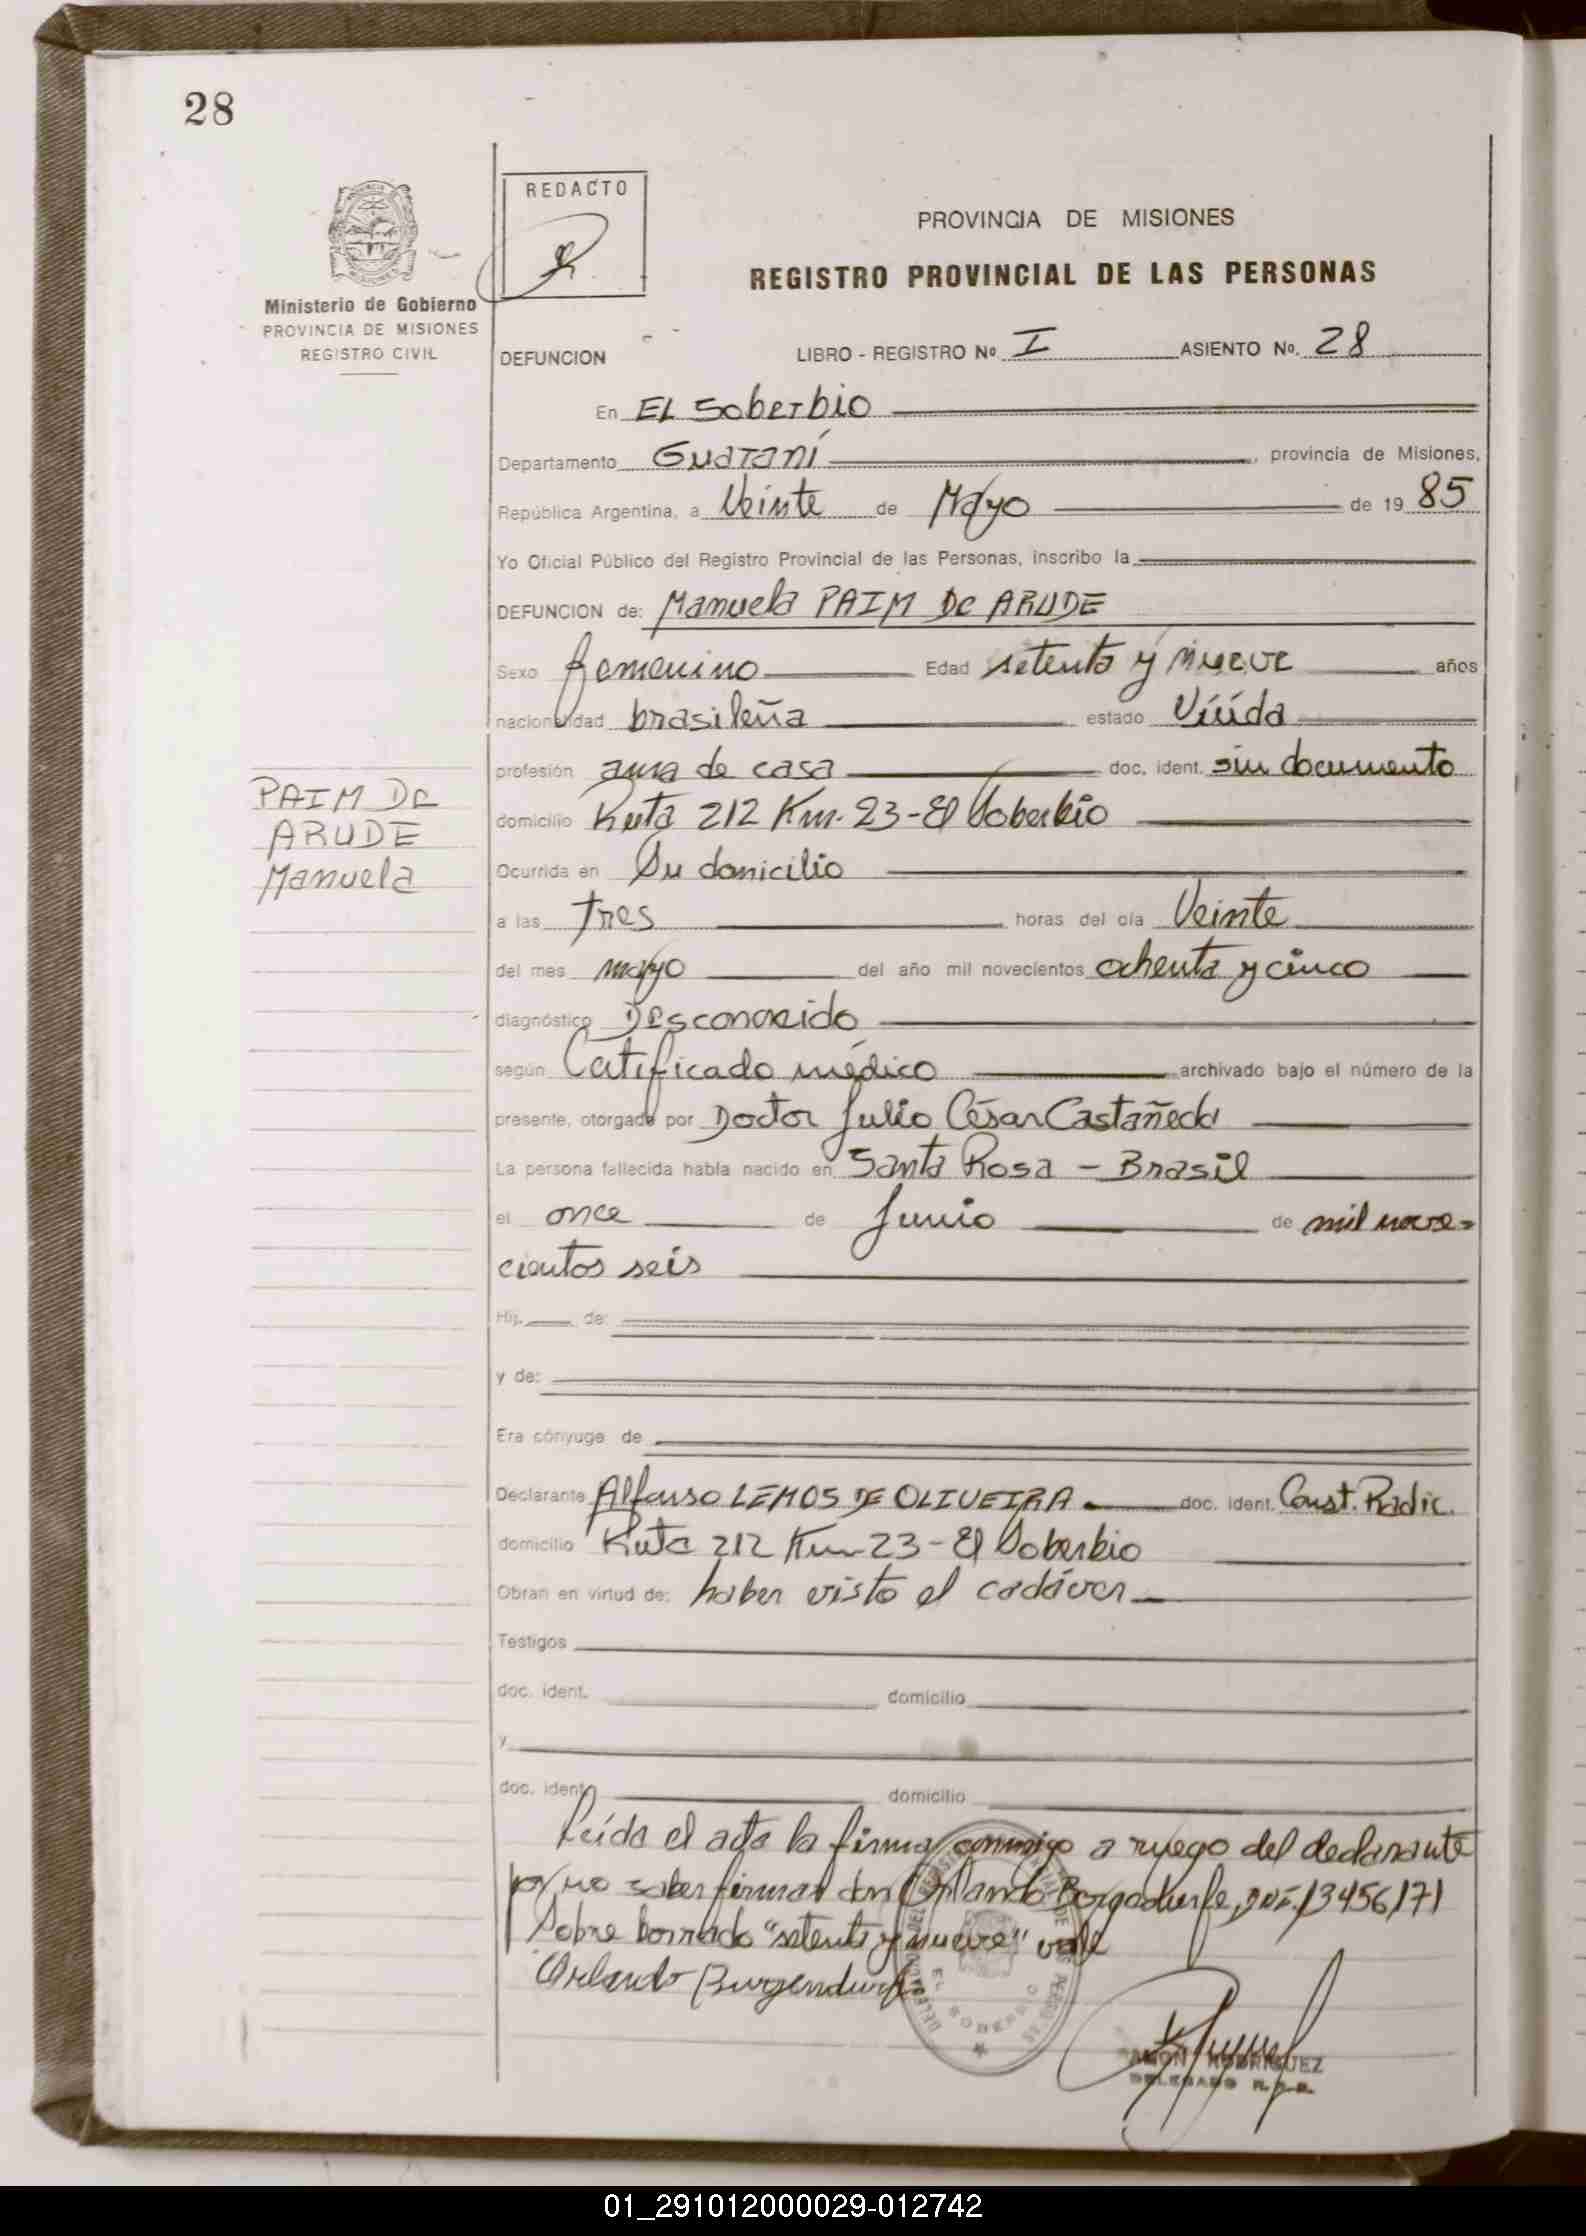 28
REDACTO
Ministerio de Gobierno
PROVINCIA DE MISIONES
REGISTRO CIVIL
PROVINCIA DE MISIONES
REGISTRO PROVINCIAL DE LAS PERSONAS
DEFUNCION LIBRO - REGISTRO Nº I ASIENTO Nº. 28
En EL Soberbio
Departamento Guaraní, provincia de Misiones,
República Argentina, a Veinte de Mayo de 19 85
Yo Oficial Público del Registro Provincial de las Personas, inscribo la
DEFUNCION de: Manuela PAIM De ARUDE
Sexo femenino Edad setenta y nueve años
nacionalidad brasileña estado Viúda
PAIM De
ARUDE
Manuela
profesión ama de casa doc. ident. sin documento
domicilio Ruta 212 Km. 23 - El Soberbio
Ocurrida en Su domicilio
a las tres horas del día Veinte
del mes mayo del año mil novecientos ochenta y cinco
diagnóstico Desconocido
según Certificado médico archivado bajo el número de la
presente, otorgado por Doctor Julio César Castañeda
La persona fallecida había nacido en Santa Rosa - Brasil
el once de Junio de mil nove=
cientos seis
Hij. de:
y de:
Era cónyuge de
Declarante Alfonso LEMOS DE OLIVEIRA doc. ident. Const. Radic.
domicilio Ruta 212 Km 23 - El Soberbio
Obran en virtud de: haber visto el cadáver
Testigos
doc. ident. domicilio
y
doc. ident. domicilio
Leída el acta la firma conmigo a ruego del declarante
por no saber firmar don Orlando Borgadurfe, DNI. 13456171
Sobre borrado "setenta y nueve" vale
Orlando
EL SOBERBIO
RAMON RODRIGUEZ
DELEGADO R.P.P.
01_291012000029-012742